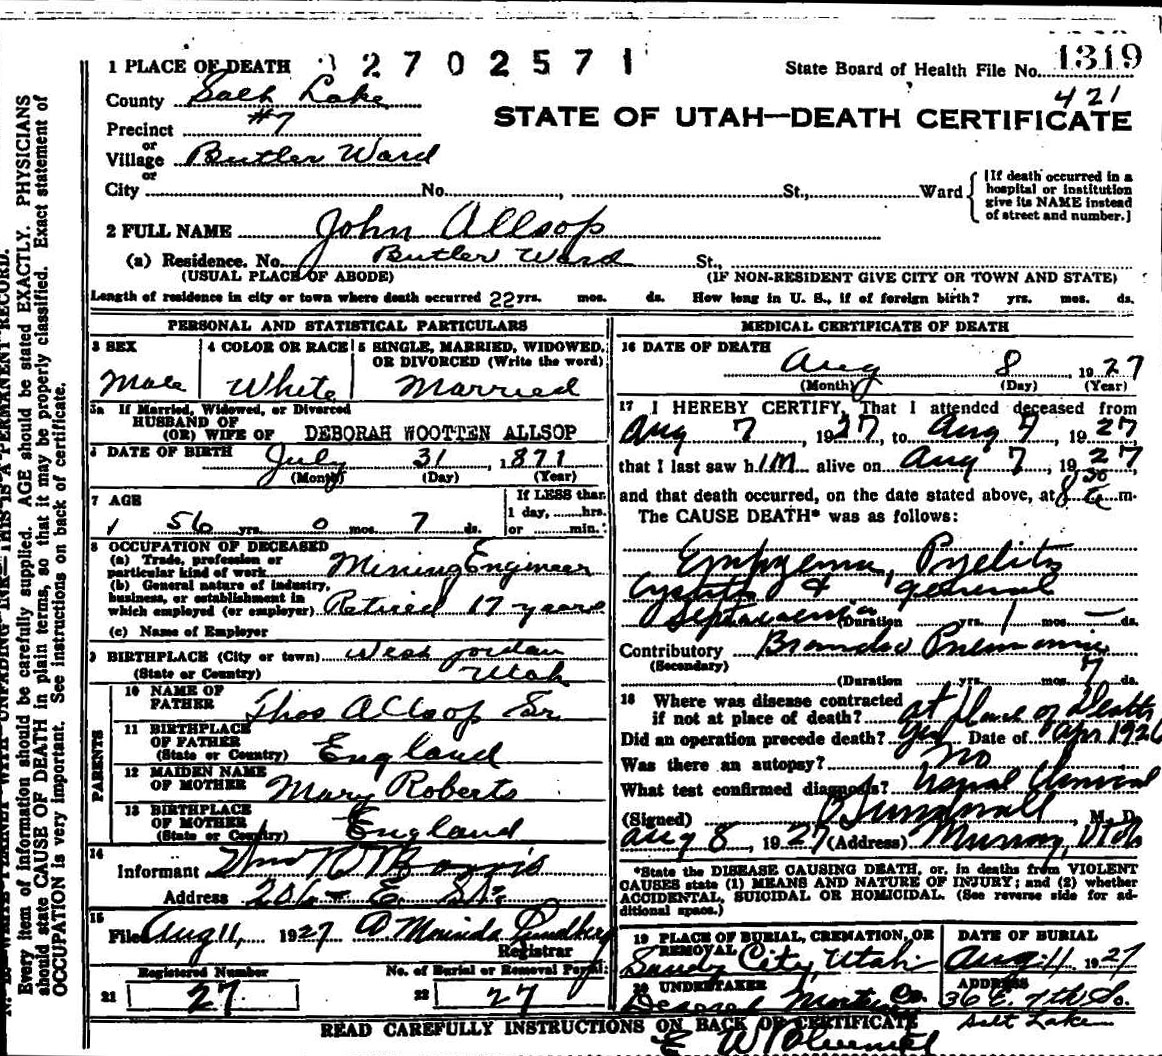 2702571
State Board of Health File No. 1319
421
STATE OF UTAH—DEATH CERTIFICATE
1 PLACE OF DEATH
County Salt Lake
Precinct #7
or
Village Butler Ward
or
City No. , St., Ward
[If death occurred in a hospital or institution give its NAME instead of street and number.]
2 FULL NAME John Allsop
(a) Residence. No. Butler Ward St.,
(USUAL PLACE OF ABODE) (IF NON-RESIDENT GIVE CITY OR TOWN AND STATE)
Length of residence in city or town where death occurred 22 yrs. mos. ds. How long in U. S., if of foreign birth? yrs. mos. ds.
PERSONAL AND STATISTICAL PARTICULARS
3 SEX
Male
4 COLOR OR RACE
White
5 SINGLE, MARRIED, WIDOWED, OR DIVORCED (Write the word)
Married
5a If Married, Widowed, or Divorced
HUSBAND OF
(OR) WIFE OF DEBORAH WOOTTEN ALLSOP
6 DATE OF BIRTH July 31, 1871
(Month) (Day) (Year)
7 AGE
56 yrs. 0 mos. 7 ds.
If LESS than
1 day, hrs.
or min.
8 OCCUPATION OF DECEASED
(a) Trade, profession or
particular kind of work Mining Engineer
(b) General nature of industry,
business, or establishment in
which employed (or employer) Retired 17 years
(c) Name of Employer
9 BIRTHPLACE (City or town) West Jordan
(State or Country) Utah
PARENTS
10 NAME OF
FATHER Thos Allsop Sr
11 BIRTHPLACE
OF FATHER
(State or Country) England
12 MAIDEN NAME
OF MOTHER Mary Roberts
13 BIRTHPLACE
OF MOTHER
(State or Country) England
14
Informant
Address
15
Filed Aug 11, 1927
Registrar
Registered Number
No. of Burial or Removal Permit
21 27
22 27
MEDICAL CERTIFICATE OF DEATH
16 DATE OF DEATH
Aug 8, 1927
(Month) (Day) (Year)
17 I HEREBY CERTIFY, That I attended deceased from
Aug 7, 1927, to Aug 7, 1927
that I last saw him alive on Aug 7, 1927
and that death occurred, on the date stated above, at m.
The CAUSE DEATH* was as follows:
Empyema, Pyelitis
Cystitis & general
Septicaemia
(Duration yrs. 1 mos. — ds.
Contributory Pneumonia
(Secondary)
(Duration yrs. mos. 7 ds.
18 Where was disease contracted
if not at place of death? at place of Death
Did an operation precede death? yes Date of Apr 1926
Was there an autopsy? no
What test confirmed diagnosis? usual clinical
(Signed) , M. D.
Aug 8, 1927 (Address) Murray, Utah
*State the DISEASE CAUSING DEATH, or, in deaths from VIOLENT
CAUSES state (1) MEANS AND NATURE OF INJURY; and (2) whether
ACCIDENTAL, SUICIDAL OR HOMICIDAL. (See reverse side for additional space.)
19 PLACE OF BURIAL, CREMATION, OR
REMOVAL
Sandy City, Utah
DATE OF BURIAL
Aug. 11 1927
20 UNDERTAKER
Deseret Mortuary Co.
ADDRESS
36 E. 7th So.
Salt Lake
READ CAREFULLY INSTRUCTIONS ON BACK OF CERTIFICATE
Every item of information should be carefully supplied. AGE should be stated EXACTLY. PHYSICIANS
should state CAUSE OF DEATH in plain terms, so that it may be properly classified. Exact statement of
OCCUPATION is very important. See instructions on back of certificate.